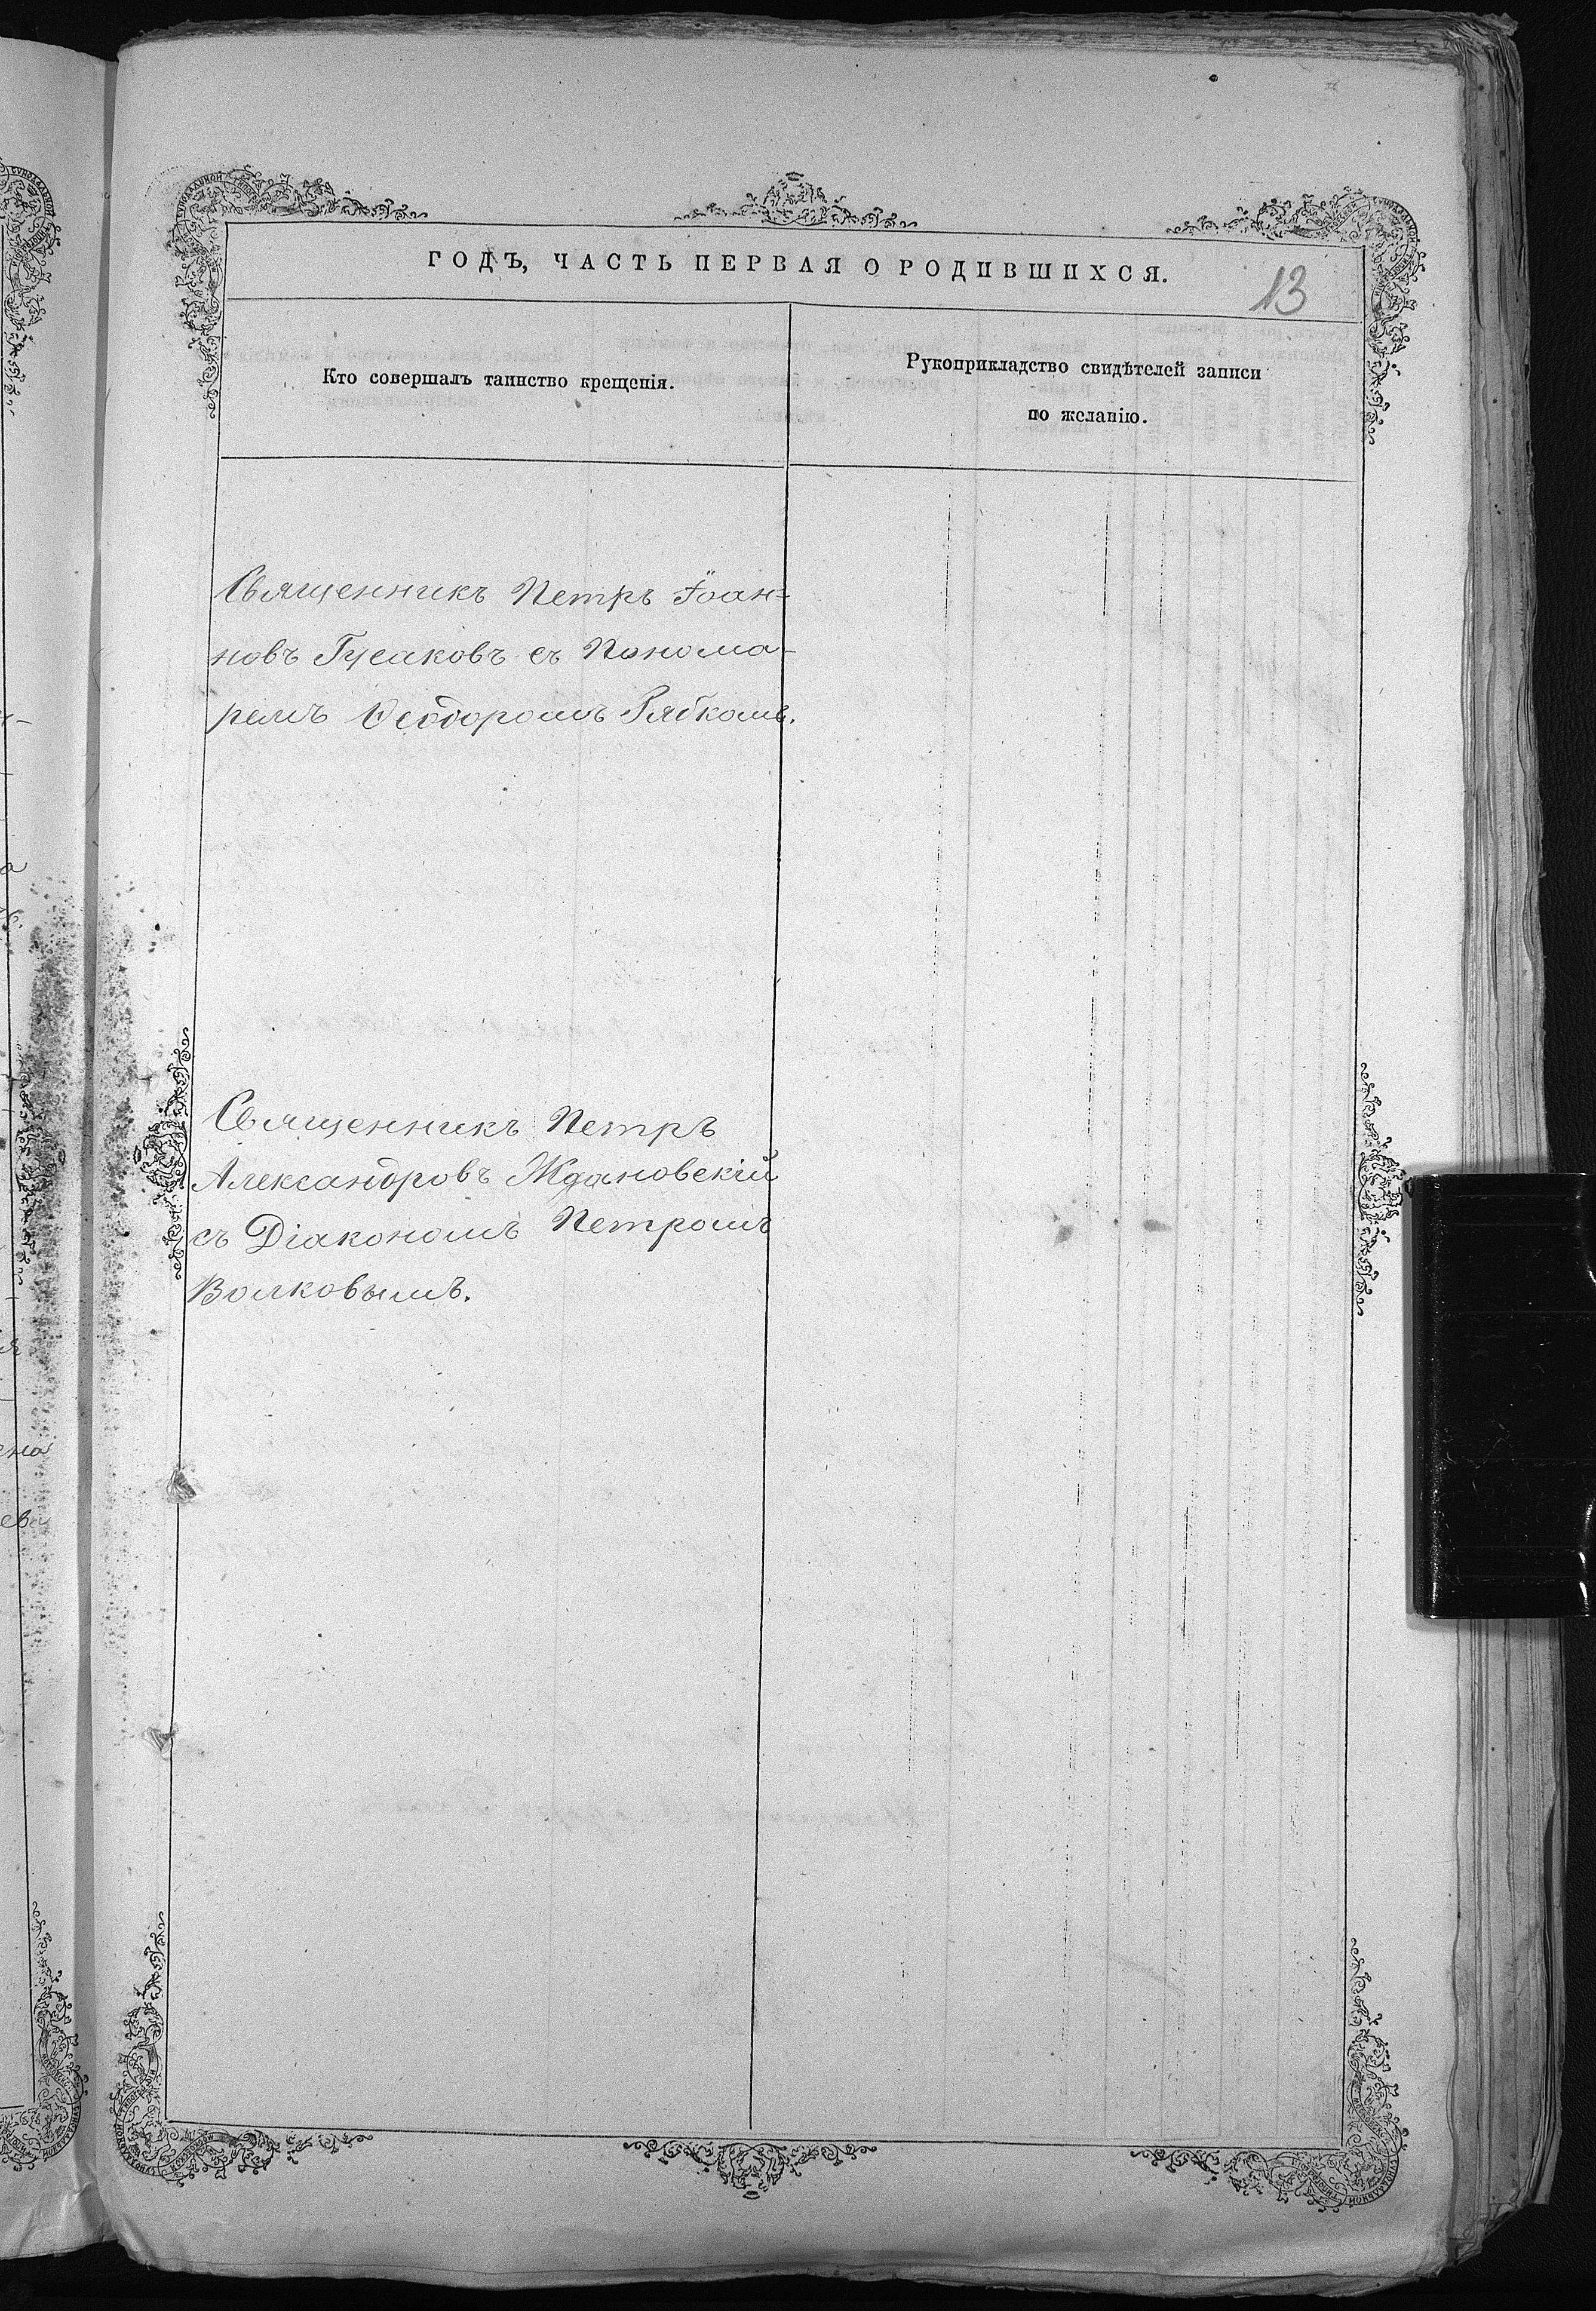 ГОДЪ, ЧАСТЬ ПЕРВАЯ О РОДИВШИХСЯ.
13
Кто совершалъ таинство крещенія.
Рукоприкладство свидѣтелей записи
по желанію.
Священникъ Петръ Іоан=
новъ Гусаковъ съ Понома-
ремъ Ѳеодоромъ Рябкомъ.
Священникъ Петръ
Александровъ Ждановскій
съ Діакономъ Петромъ
Волковымъ.